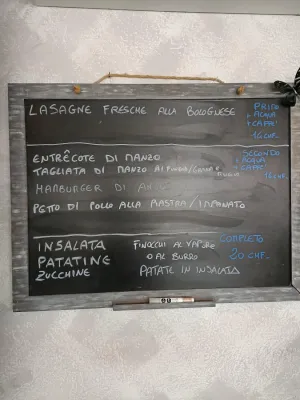 LASAGNE FRESCHE ALLA BOLOGNESE
PRIMO
+ ACQUA
+ CAFFÈ
16 CHF
ENTRÊCOTE DI MANZO
TAGLIATA DI MANZO AI FUNGHI
HAMBURGER DI
PETTO DI POLLO ALLA PIASTRA / IMPANATO
SECONDO
+ ACQUA
+ CAFFÈ
CHF
INSALATA
PATATINE
ZUCCHINE
FINOCCHI AL VAPORE
O AL BURRO
PATATE IN INSALATA
COMPLETO
20 CHF